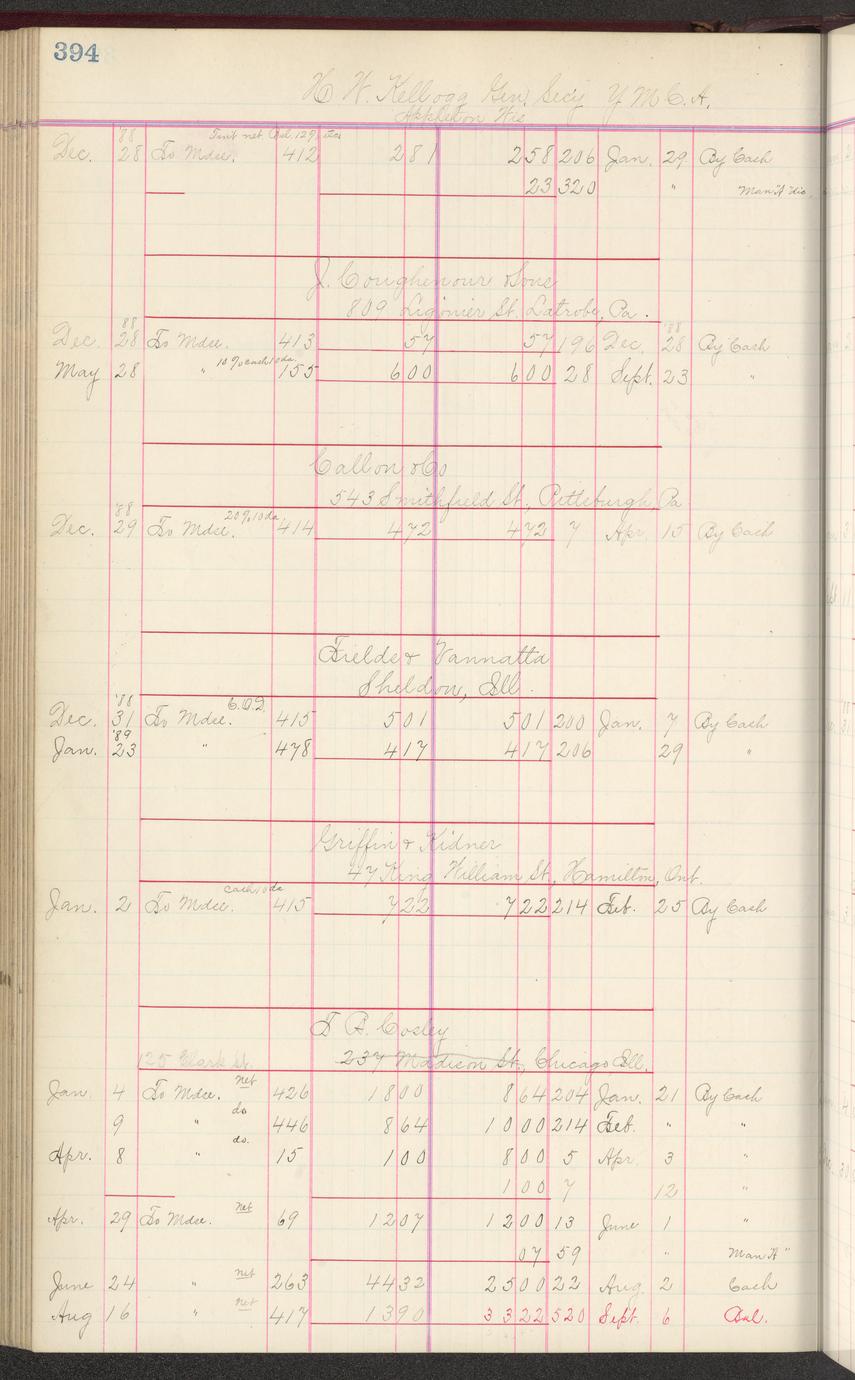 394
H. W. Kellogg Gen. Sec'y Y.M.C.A.
Appleton Wis.
'88 net
Dec. 28 To Mdse. 412 281 258 206 Jan. 29 By Cash
23 320 " Man'f dis.
J. Coughenour & Sons
809 Ligonier St. Latrobe, Pa.
88 '88
Dec. 28 To Mdse. 413 57 57 196 Dec. 28 By Cash
May 28 " 10% cash 10 da. 155 600 600 28 Sept. 23 "
Callon & Co
543 Smithfield St., Pittsburgh Pa
'88 20% 10 da.
Dec. 29 To Mdse. 414 472 472 7 Apr. 15 By Cash
Fields & Vannatta
Sheldon, Ill.
'88 C.O.D.
Dec. 31 To Mdse. 415 501 501 200 Jan. 7 By Cash
'89
Jan. 23 " 478 417 417 206 29 "
Griffin & Kidner
47 King William St., Hamilton, Ont.
cash 10 da
Jan. 2 To Mdse. 415 722 722 214 Feb. 25 By Cash
Cosley
125 Clark St. 237 Madison St., Chicago Ill.
Jan. 4 To Mdse. net 426 1800 864 204 Jan. 21 By Cash
9 " do 446 864 1000 214 Feb. " "
Apr. 8 " do. 15 100 800 5 Apr. 3 "
100 7 12 "
Apr. 29 To Mdse. net 69 1207 1200 13 June 1 "
07 59 " Man'f "
June 24 " net 263 4432 2500 22 Aug. 2 Cash
Aug 16 " net 417 1390 3322 520 Sept. 6 Bal.